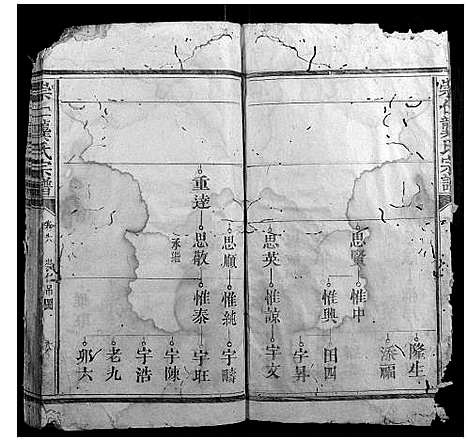 崇仁龔氏宗譜
隆生
添福
思賢
惟中
惟興
田四
宇昇
思英
惟諒
宇文
思順
惟純
宇疇
重達
思敬
惟泰
宇旺
承繼
宇陳
宇浩
老九
邓六
崇仁龔氏宗譜